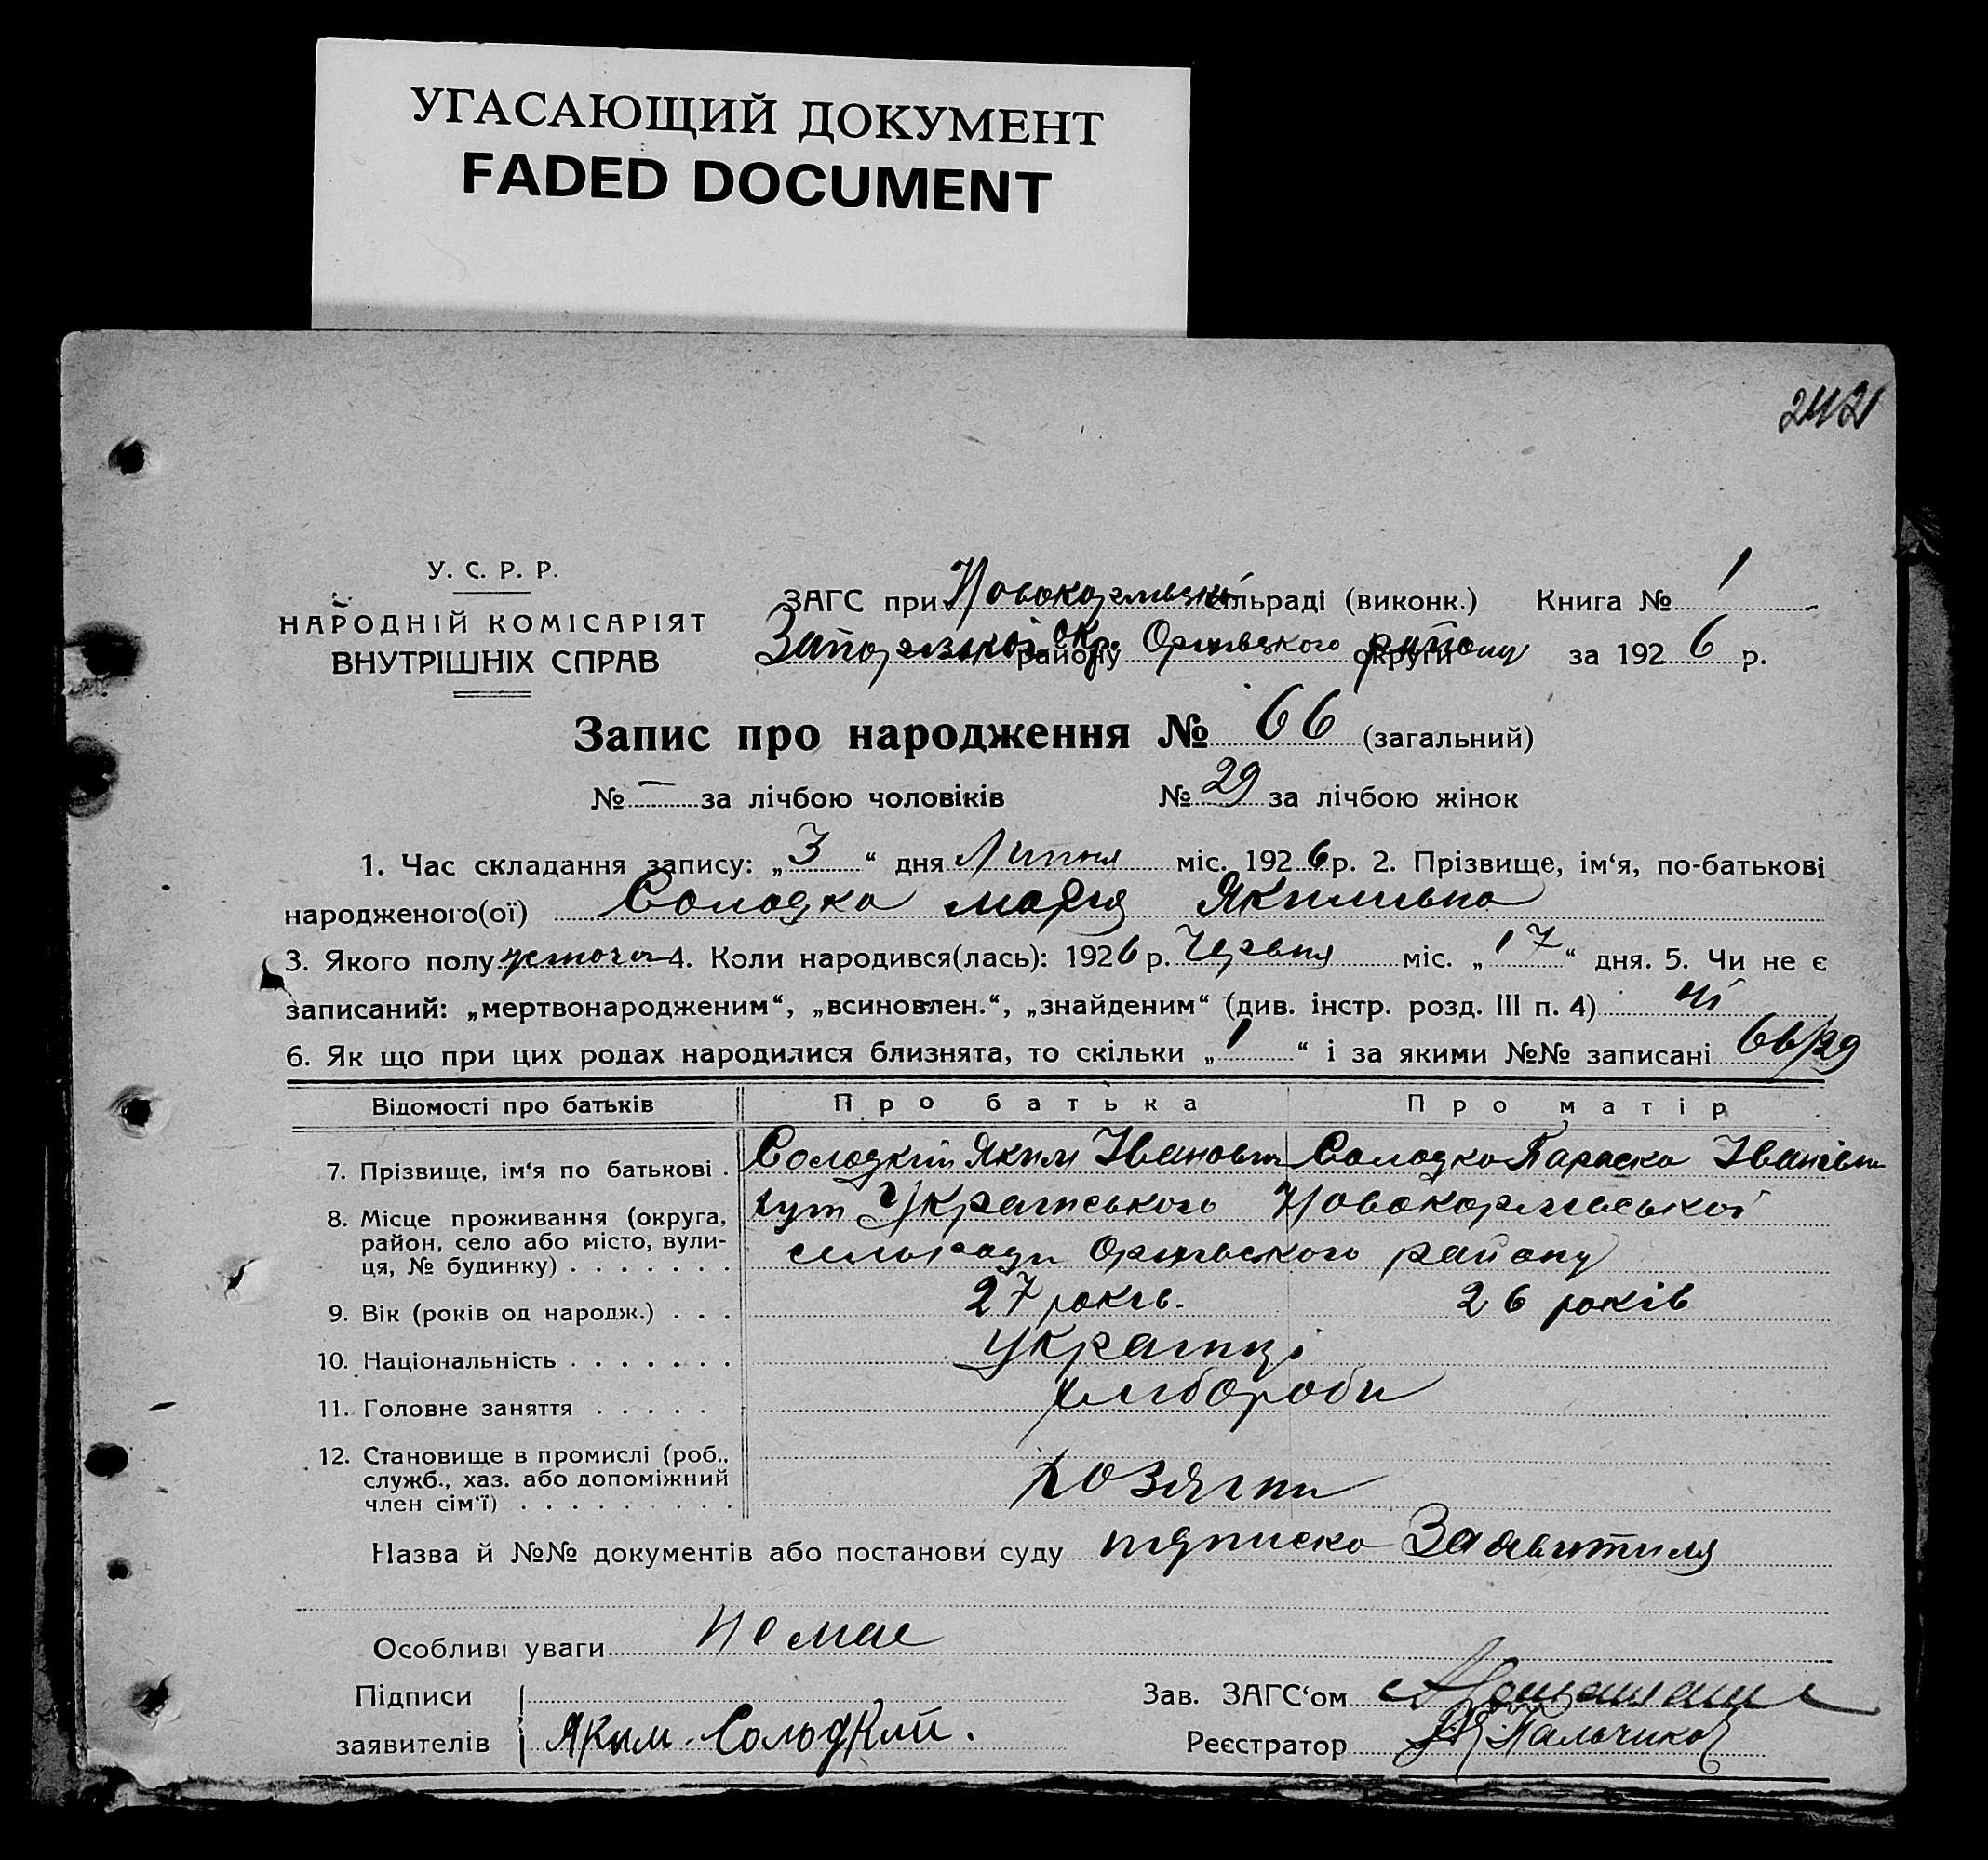 УГАСАЮЩИЙ ДОКУМЕНТ
FADED DOCUMENT
242
У. С. Р. Р.
НАРОДНІЙ КОМІСАРІЯТ
ВНУТРІШНІХ СПРАВ
ЗАГС при сільраді (виконк.) Книга № 1
Запорізької окр. району округи району за 1926 р.
Запис про народження № 66 (загальний)
№ — за лічбою чоловіків № 29 за лічбою жінок
1. Час складання запису: „3“ дня Липня міс. 1926 р. 2. Прізвище, ім‘я, по-батькові
народженого(ої) Солодка Марія Якимівна
3. Якого полу жіночого 4. Коли народився(лась): 1926 р. Червня міс. „17“ дня. 5. Чи не є
записаний: „мертвонародженим“, „всиновлен.“, „знайденим“ (див. інстр. розд. III п. 4) ні
6. Як що при цих родах народилися близнята, то скільки „1“ і за якими №№ записані 66/29
Відомості про батьків Про батька Про матір
7. Прізвище, ім‘я по батькові . Солодкий Яким Іванович Солодка Параска Іванівна
8. Місце проживання (округа, хут Українського Новокарлівської
район, село або місто, вули-
ця, № будинку) . . . . . . . сільради Оріхівського району
9. Вік (років од народж.) . . . 27 років. 26 років
10. Національність . . . . . . . Українці
11. Головне заняття . . . . . хлібороби
12. Становище в промислі (роб.,
служб., хаз. або допоміжний
член сім‘ї) . . . . . . . . . хозяїни
Назва й №№ документів або постанови суду підписка Заявителя
Особливі уваги Немае
Підписи Зав. ЗАГС‘ом
заявителів Яким Солодкий. Реєстратор Пальчиков